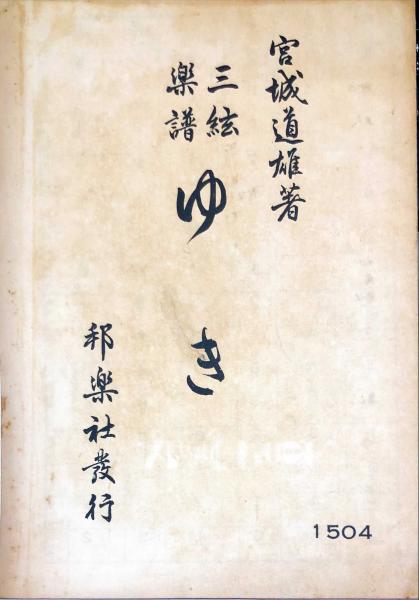 宮城道雄著
三絃
樂譜
ゆき
邦樂社發行
1504